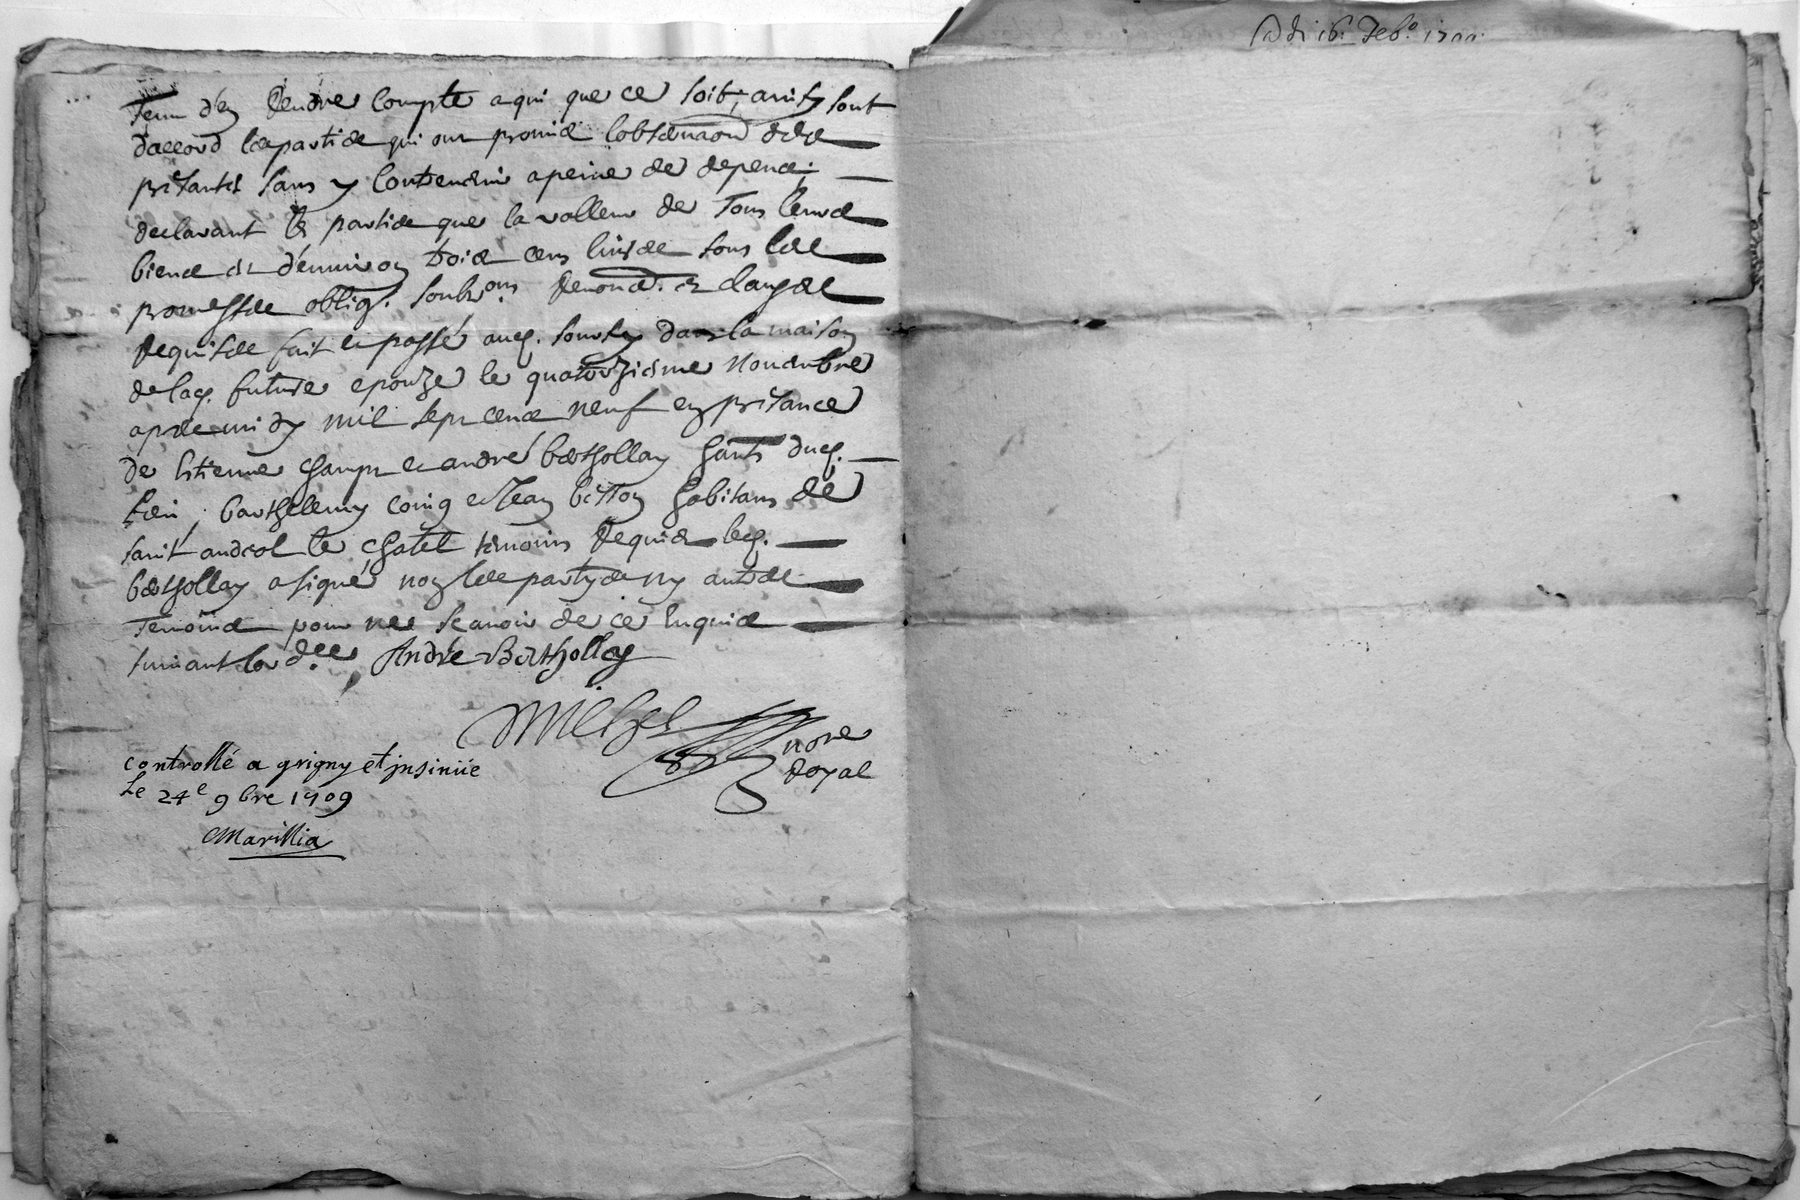 tenu d'en Rendre Compte a qui que ce soit, ainsy sont
daccord les parties qui ont promis lobservaon des
pntes sans y Contrevenir a peine de depens;
declarant les parties que la valleur de Tous leurs
biens est d'environ trois cens livres sous les
promesses oblig. soubzons. Renonc. et clauses
Requises fait et passé aud. dans la maison
de lad. future epouze le quatorzieme Novembre
apres midy mil sept cens neuf en presance
de Estienne et andré bertholley hants dud.
lieu, barthelemy coing et Jean habitans de
saint andeol le Chatel temoins Requis led.
bertholley a signé non les partyes ny autres
Temoins pour ne scavoir de ce Enquis
suivant lord.ce André Bertholley
nore
Royal
controllé a grigny et jnsinüé
Le 24e 9bre 1709
Marillia
Adi 16. Feb.o